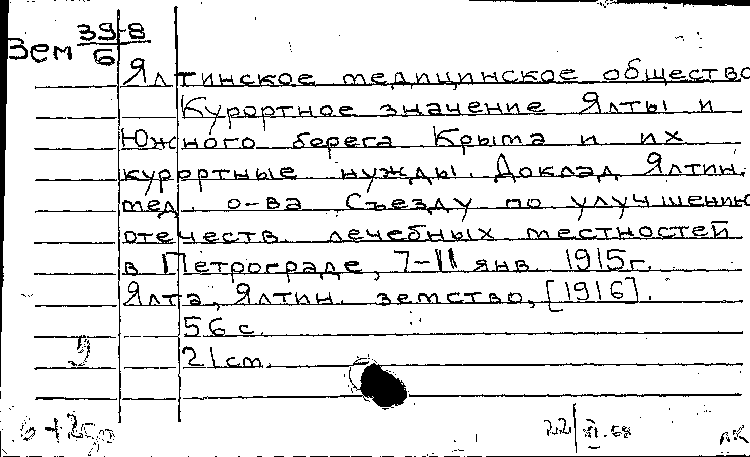 Зем 39-8
6
Ялтинское медицинское общество
Курортное значение Ялты и
Южного берега Крыма и их
курортные нужды. Доклад Ялтин.
мед. о-ва Съезду по улучшению
отечеств. лечебных местностей
в Петрограде, 7-11 янв. 1915г.
Ялта, Ялтин. земство, [1916].
56 с.
21 cm.
22/XI.68